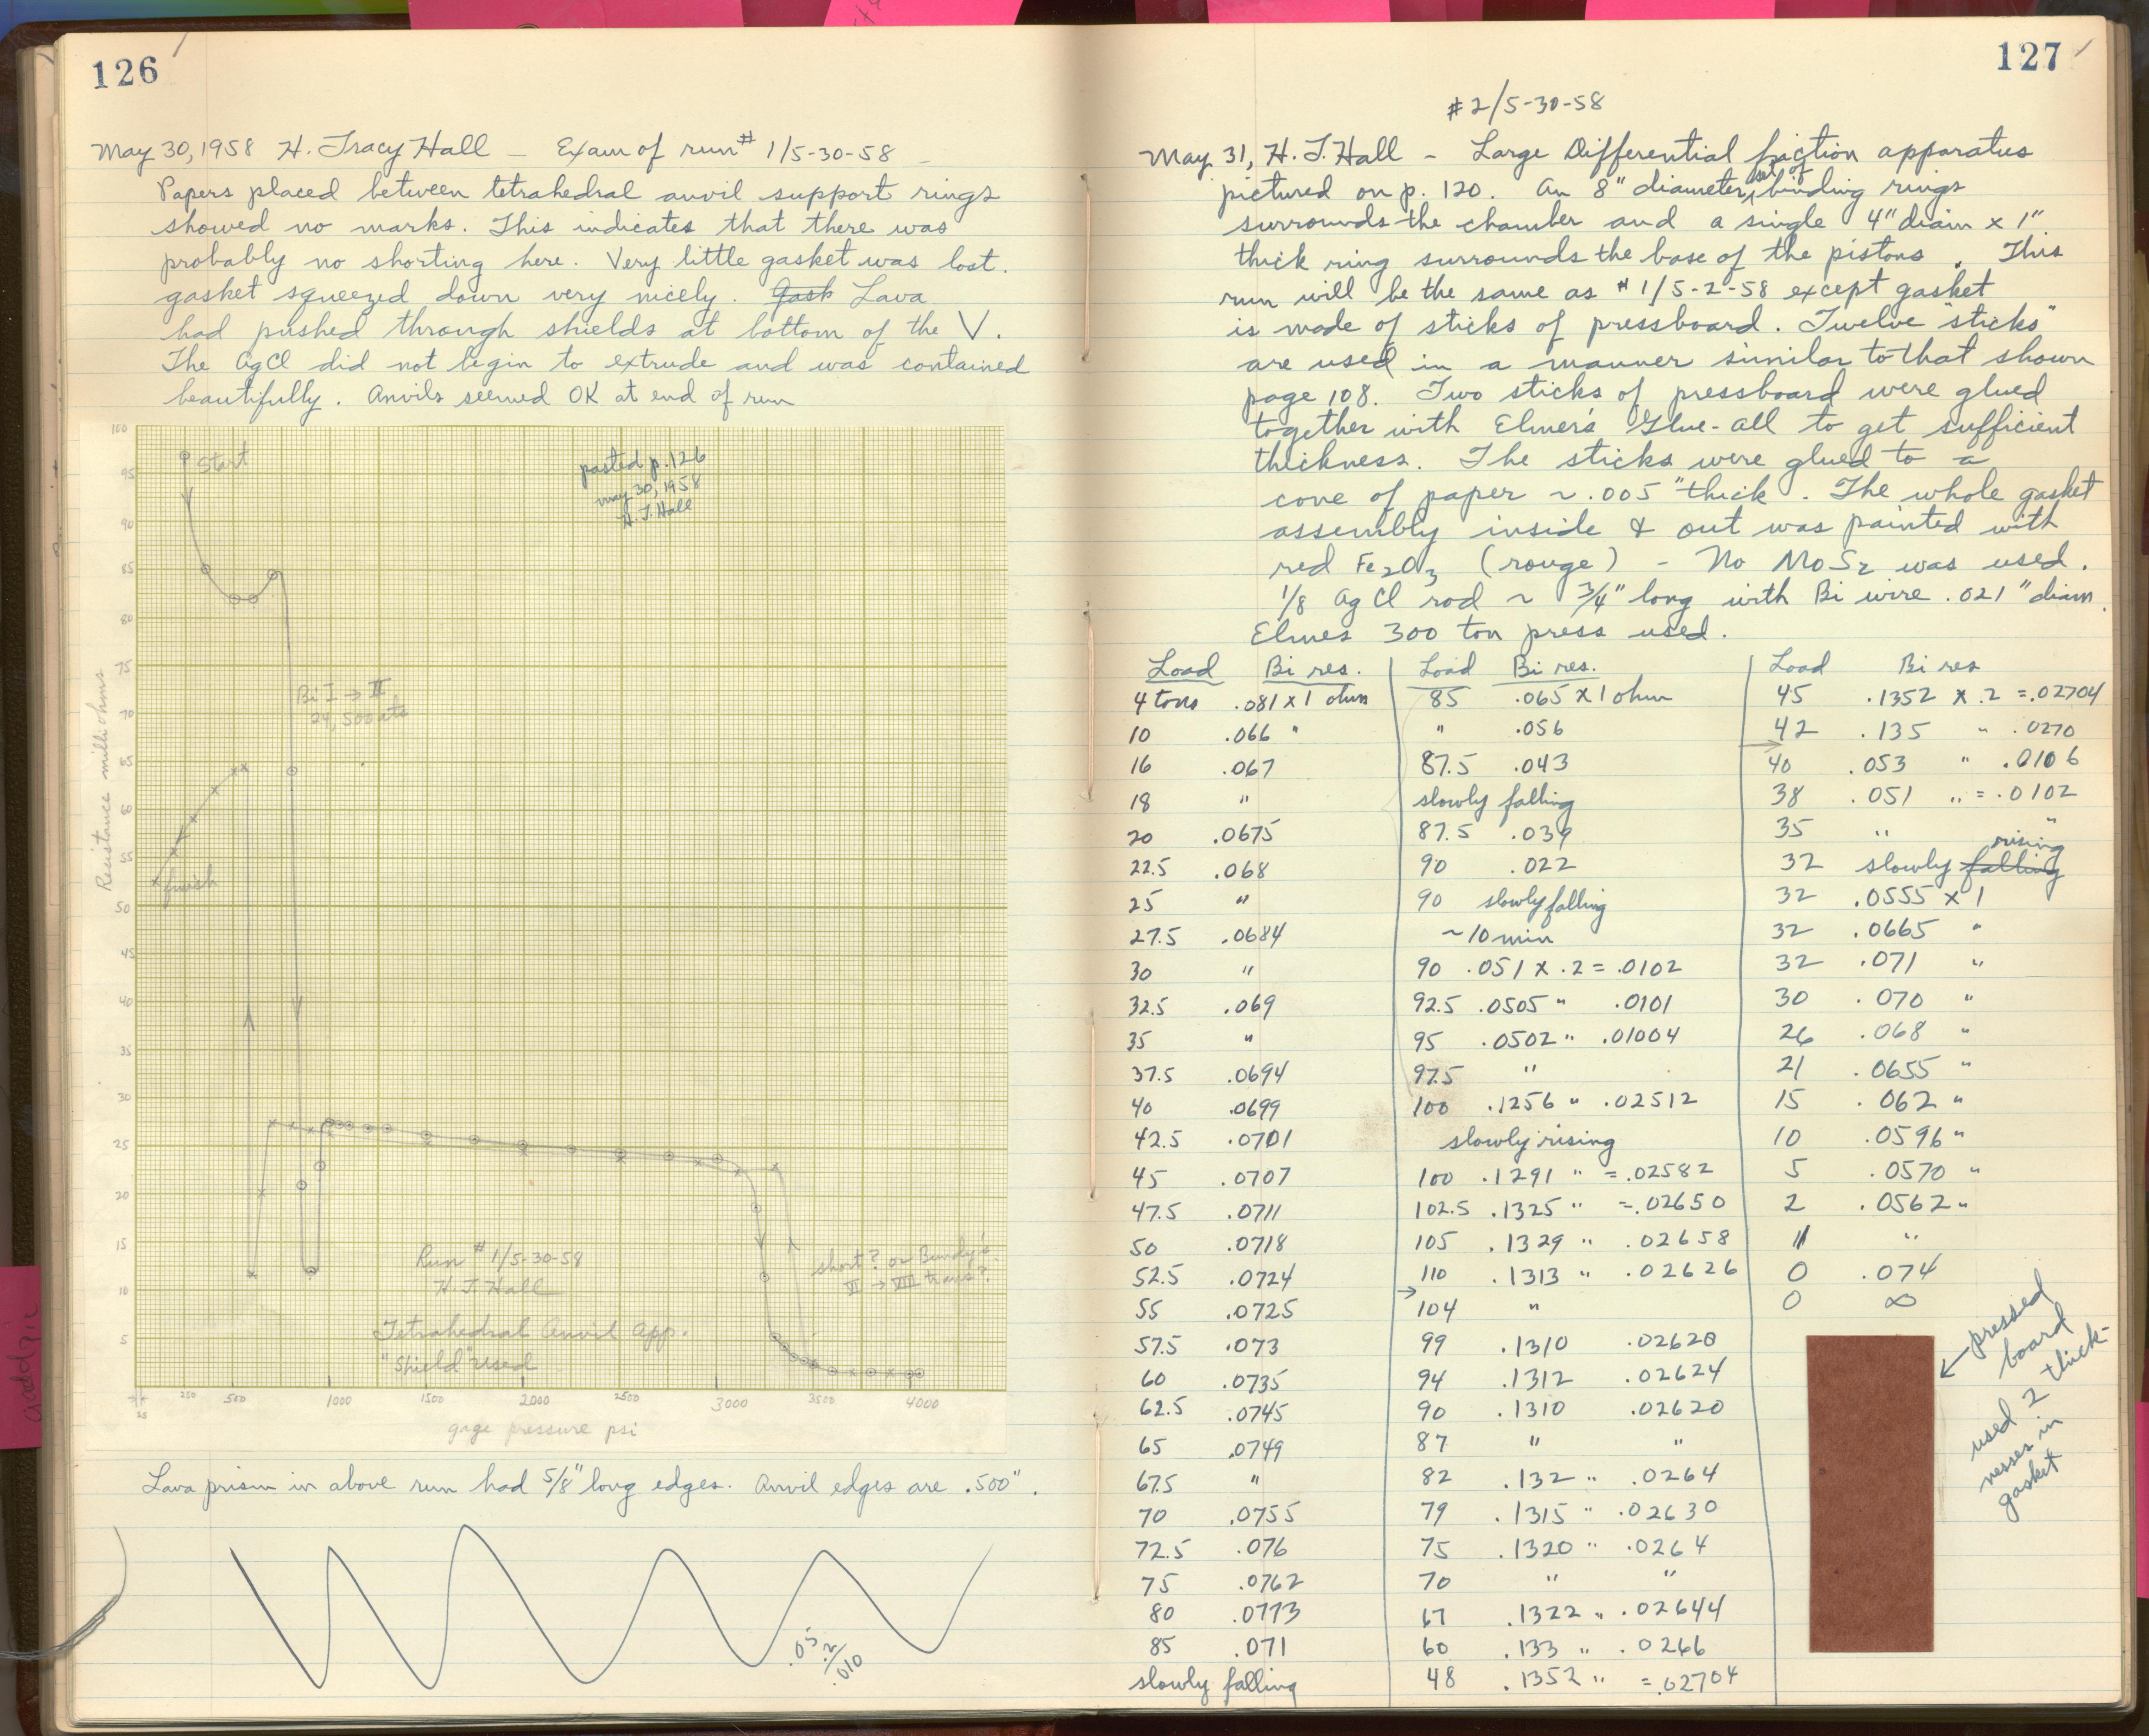 126
May 30, 1958 H. Tracy Hall — Exam of run # 1/5-30-58 —
Papers placed between tetrahedral anvil support rings
showed no marks. This indicates that there was
probably no shorting here. Very little gasket was lost.
gasket squeezed down very nicely. Gask Lava
had pushed through shields at bottom of the V.
The AgCl did not begin to extrude and was contained
beautifully. Anvils seemed OK at end of run
pasted p. 126
may 30, 1958
H. T. Hall
Start
Bi I → II
24,500 atm
finish
Run # 1/5-30-58
H. T. Hall
Tetrahedral Anvil App.
"Shield" used
short? or Bundy's
VI → VIII trans?
Resistance milliohms
100
95
90
85
80
75
70
65
60
55
50
45
40
35
30
25
20
15
10
5
25
250 500 1000 1500 2000 2500 3000 3500 4000
gage pressure psi
Lava prism in above run had 5/8" long edges. Anvil edges are .500".
.05
.2
.010
127
#2/5-30-58
May 31, H. T. Hall - Large Differential friction apparatus
pictured on p. 120. An 8" diameter set of binding rings
surrounds the chamber and a single 4" diam x 1"
thick ring surrounds the base of the pistons. This
run will be the same as # 1/5-2-58 except gasket
is made of sticks of pressboard. Twelve "sticks"
are used in a manner similar to that shown
page 108. Two sticks of pressboard were glued
together with Elmer's Glue-all to get sufficient
thickness. The sticks were glued to a
cone of paper ~ .005" thick. The whole gasket
assembly inside & out was painted with
red Fe2O3 (rouge) - No MoS2 was used.
1/8 AgCl rod ~ 3/4" long with Bi wire .021" diam.
Elmes 300 ton press used.
Load Bi res.
4 tons .081 x 1 ohm
10 .066 "
16 .067
18 "
20 .0675
22.5 .068
25 "
27.5 .0684
30 "
32.5 .069
35 "
37.5 .0694
40 .0699
42.5 .0701
45 .0707
47.5 .0711
50 .0718
52.5 .0724
55 .0725
57.5 .073
60 .0735
62.5 .0745
65 .0749
67.5 "
70 .0755
72.5 .076
75 .0762
80 .0773
85 .071
slowly falling
Load Bi res.
85 .065 x 1 ohm
" .056
87.5 .043
slowly falling
87.5 .039
90 .022
90 slowly falling
~10 min
90 .051 x .2 = .0102
92.5 .0505 " .0101
95 .0502 " .01004
97.5 "
100 .1256 " .02512
slowly rising
100 .1291 " = .02582
102.5 .1325 " = .02650
105 .1329 " .02658
110 .1313 " .02626
→
104 "
99 .1310 .02620
94 .1312 .02624
90 .1310 .02620
87 " "
82 .132 " .0264
79 .1315 " .02630
75 .1320 " .0264
70 " "
67 .1322 " .02644
60 .133 " .0266
48 .1352 " = .02704
Load Bi res
45 .1352 x .2 = .02704
42 .135 " .0270
→
40 .053 " .0106
38 .051 " = .0102
35 " "
32 slowly falling rising
32 .0555 x 1
32 .0665 "
32 .071 "
30 .070 "
26 .068 "
21 .0655 "
15 .062 "
10 .0596 "
5 .0570 "
2 .0562 "
" "
0 .074
0 ∞
← pressed
board
used 2 thick-
nesses in
gasket